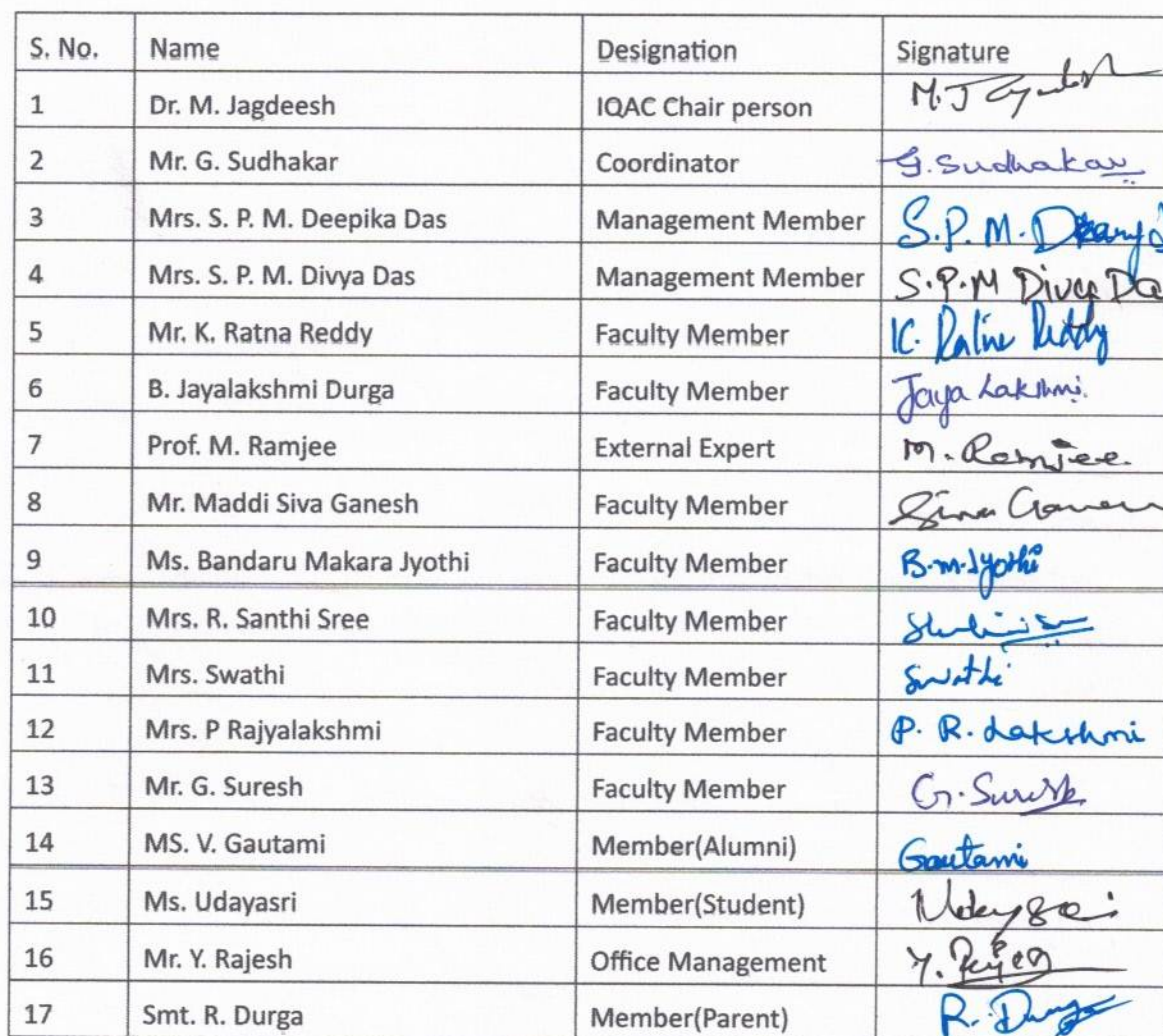 S. No. Name Designation Signature
1 Dr. M. Jagdeesh IQAC Chair person M. J
2 Mr. G. Sudhakar Coordinator G. Sudhakar
3 Mrs. S. P. M. Deepika Das Management Member S. P. M.
4 Mrs. S. P. M. Divya Das Management Member S. P. M Divya Da
5 Mr. K. Ratna Reddy Faculty Member K. Ratna Reddy
6 B. Jayalakshmi Durga Faculty Member Jaya Lakshmi.
7 Prof. M. Ramjee External Expert M. Ramjee.
8 Mr. Maddi Siva Ganesh Faculty Member Siva Ganesh
9 Ms. Bandaru Makara Jyothi Faculty Member B.M.Jyothi
10 Mrs. R. Santhi Sree Faculty Member
11 Mrs. Swathi Faculty Member Swathi
12 Mrs. P Rajyalakshmi Faculty Member P. R. Lakshmi
13 Mr. G. Suresh Faculty Member G. Suresh
14 MS. V. Gautami Member(Alumni) Gautami
15 Ms. Udayasri Member(Student)
16 Mr. Y. Rajesh Office Management Y. Rajesh
17 Smt. R. Durga Member(Parent) R. Durga